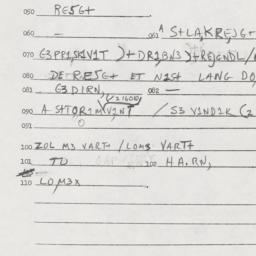 050 RESG+
060 —
061 A S+LAKRE,JG+
070 G3PP1SKSV1T )+DR1BN3)+REJGNDL/
080 DERESG+ ET N1S+ LANG DO,
081 G3D1RN, 082 —
090 A SHTOR1M(V1NT / S3 V1ND1K (2
091
100 ZOL M3 VART+ /LOM3 VART+
101 TU 100 H.A.RN,
110 LOM3X